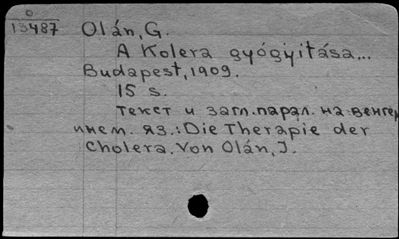 0
13487
Olán, G.
A Kolera gyógyitása...
Budapest, 1909.
15 s.
текст и загл. парал. на венгер
и нем. яз.: Die Therapie der
Cholera. Von Olán, J.